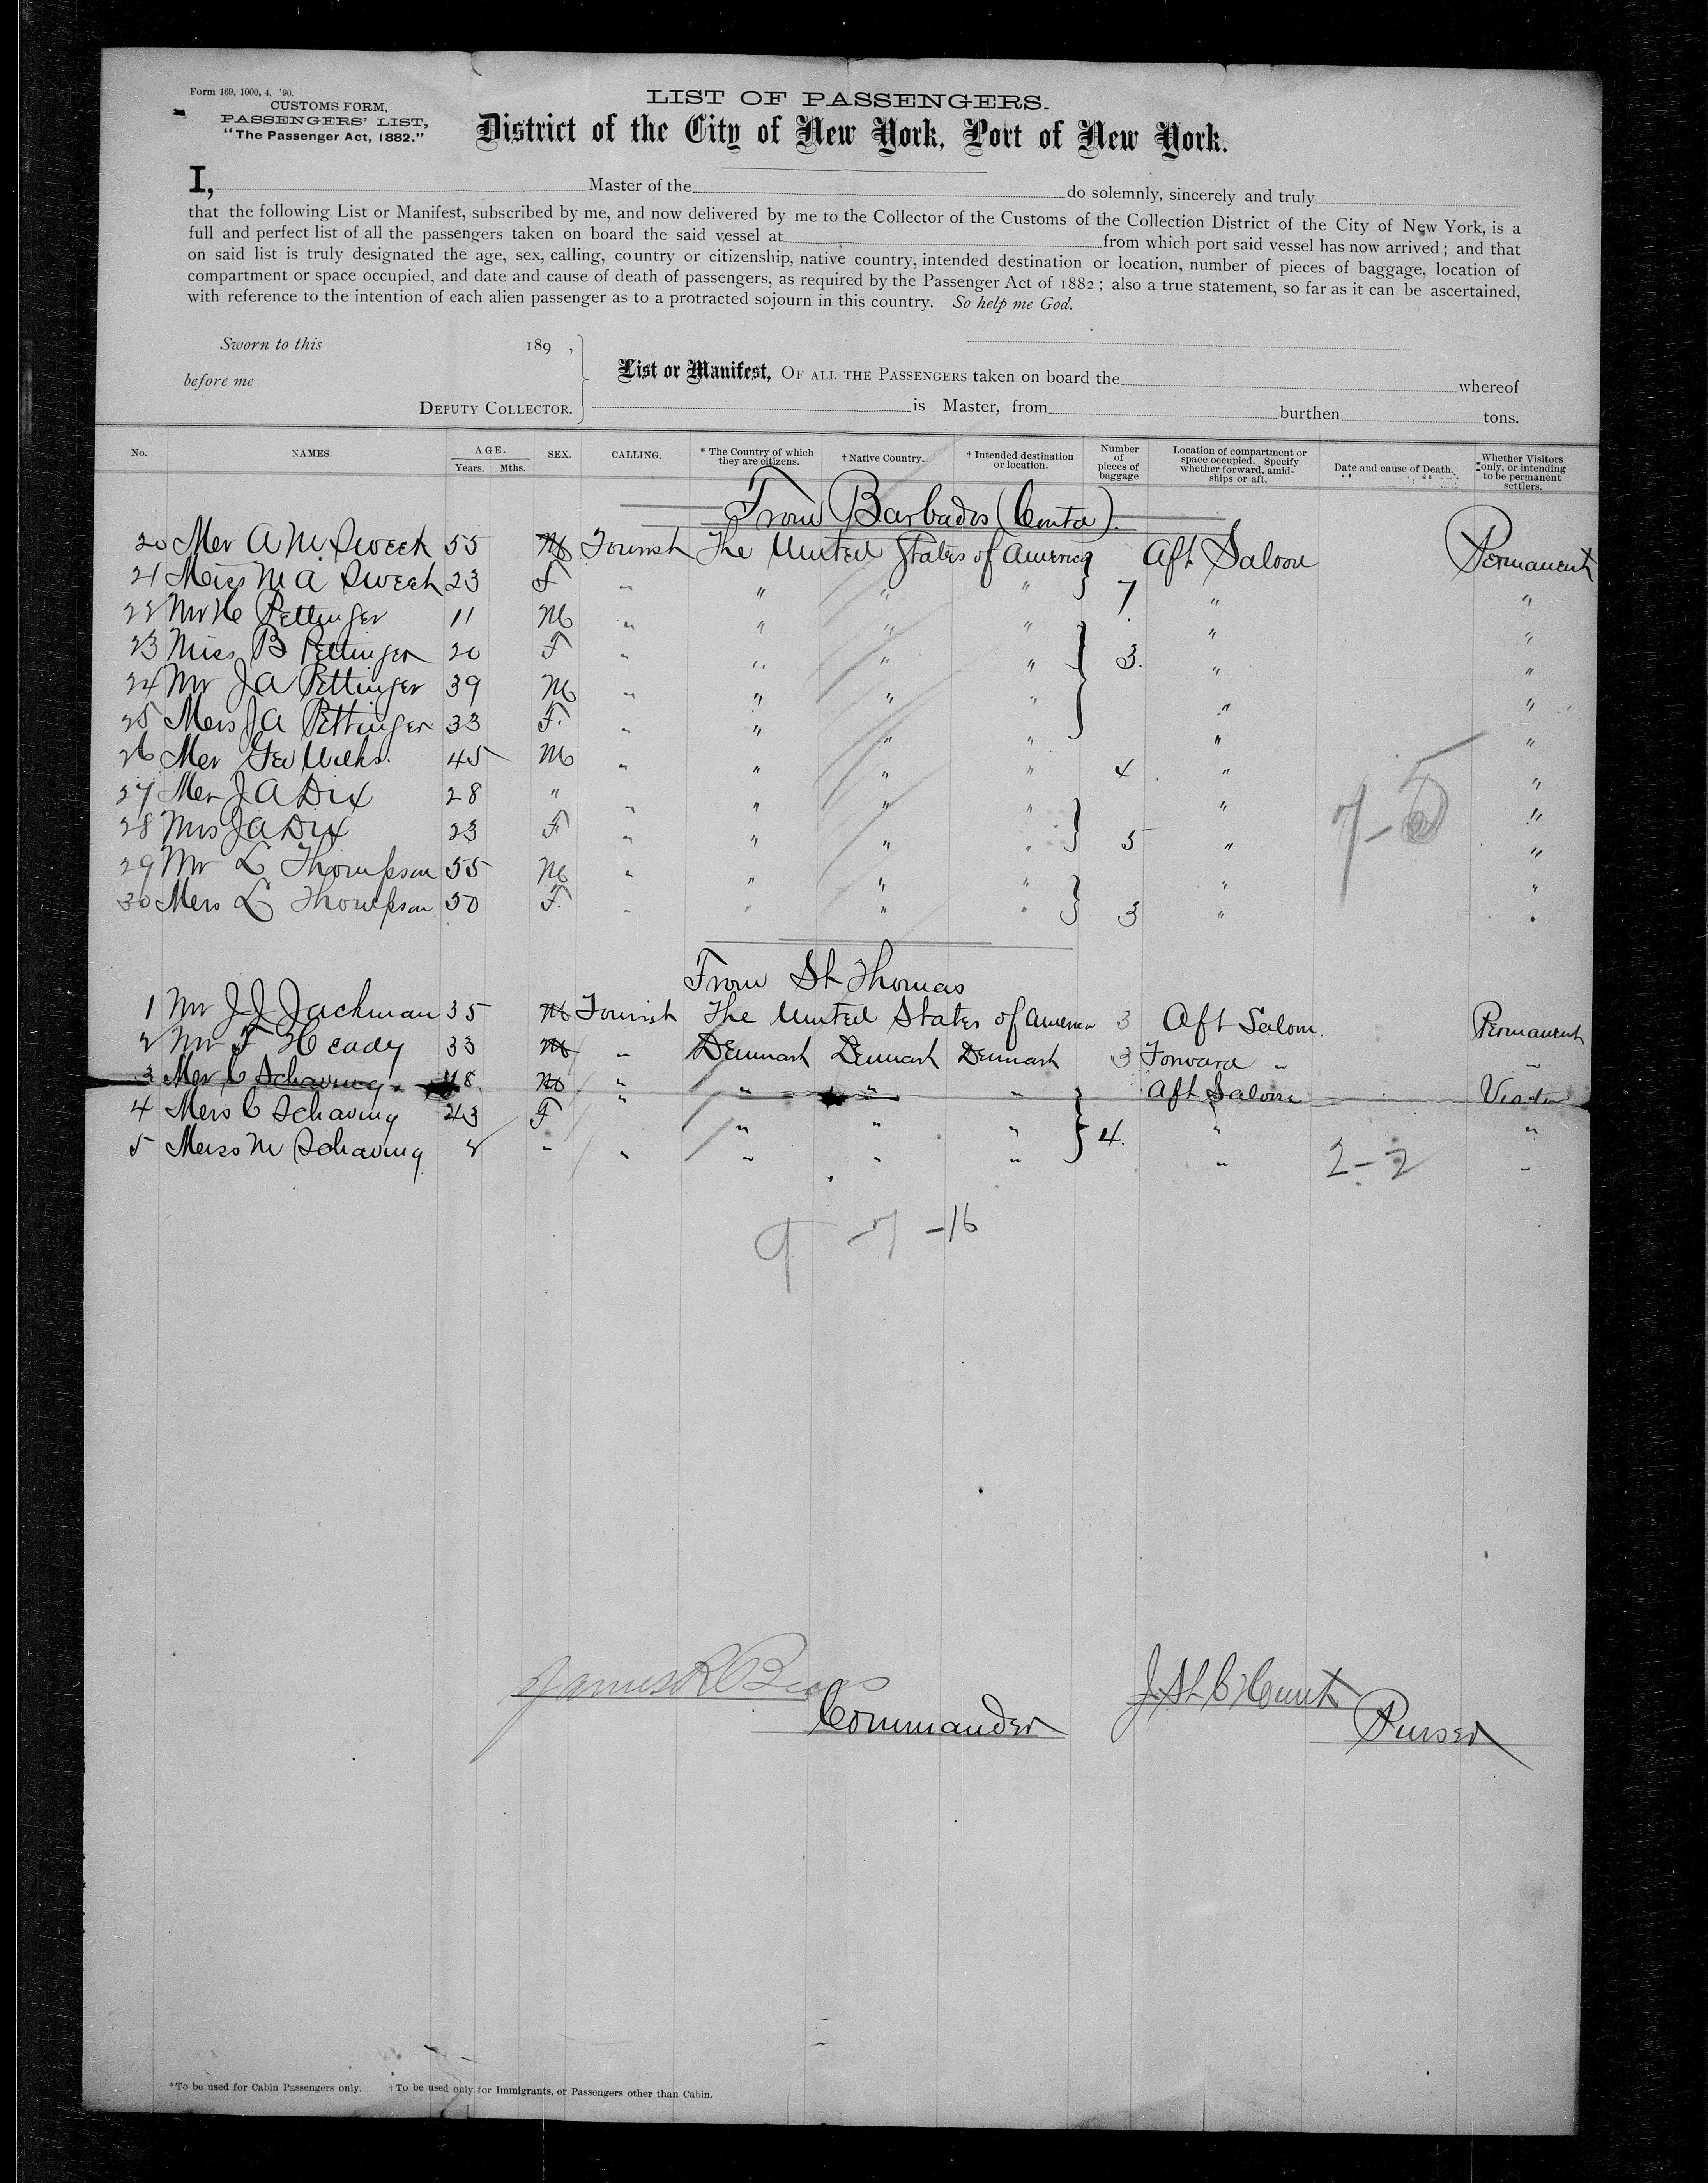 Form 169, 1000, 4, '90.
CUSTOMS FORM,
PASSENGERS' LIST,
"The Passenger Act, 1882."
LIST OF PASSENGERS.
District of the City of New York, Port of New York.
I, Master of the do solemnly, sincerely and truly
that the following List or Manifest, subscribed by me, and now delivered by me to the Collector of the Customs of the Collection District of the City of New York, is a
full and perfect list of all the passengers taken on board the said vessel at from which port said vessel has now arrived; and that
on said list is truly designated the age, sex, calling, country or citizenship, native country, intended destination or location, number of pieces of baggage, location of
compartment or space occupied, and date and cause of death of passengers, as required by the Passenger Act of 1882; also a true statement, so far as it can be ascertained,
with reference to the intention of each alien passenger as to a protracted sojourn in this country. So help me God.
Sworn to this 189 ,
before me
DEPUTY COLLECTOR.
List or Manifest, OF ALL THE PASSENGERS taken on board the whereof
is Master, from burthen tons.
No. NAMES. AGE. Years. Mths. SEX. CALLING. * The Country of which they are citizens. † Native Country. † Intended destination or location. Number of pieces of baggage Location of compartment or space occupied. Specify whether forward, amidships or aft. Date and cause of Death. Whether Visitors only, or intending to be permanent settlers.
From Barbados (Contd).
20 Mr A M Sweet 55 M Tourist The United States of America Aft Saloon Permanent
21 Miss M A Sweet 23 F " " " " 7 " "
22 Mr H Pettinger 11 M " " " " " "
23 Miss B Pettinger 20 F " " " " 3. " "
24 Mr J A Pettinger 39 M " " " " " "
25 Mrs J A Pettinger 33 F. " " " " " "
26 Mr Geo 45 M " " " " 4 " "
27 Mr J A Dix 28 " " " " " " "
28 Mrs J A Dix 23 F " " " " 5 " "
29 Mr L Thompson 55 M " " " " " "
30 Mrs L Thompson 50 F. " " " " 3 " "
7-5
From St Thomas
1 Mr J J Jackman 35 M Tourist The United States of America 3 Aft Saloon. Permanent
2 Mr F Heady 33 M " Denmark Denmark Denmark 3 Forward " "
3 Mr C Schaving 48 M " " " " Aft Saloon Visitor
4 Mrs C Schaving 43 F " " " " "
5 Miss M Schaving 8 " " " " " 4. " "
2-2
9 -7 -16
James R
Commander
J. St C Hunt
Purser
*To be used for Cabin Passengers only. †To be used only for Immigrants, or Passengers other than Cabin.